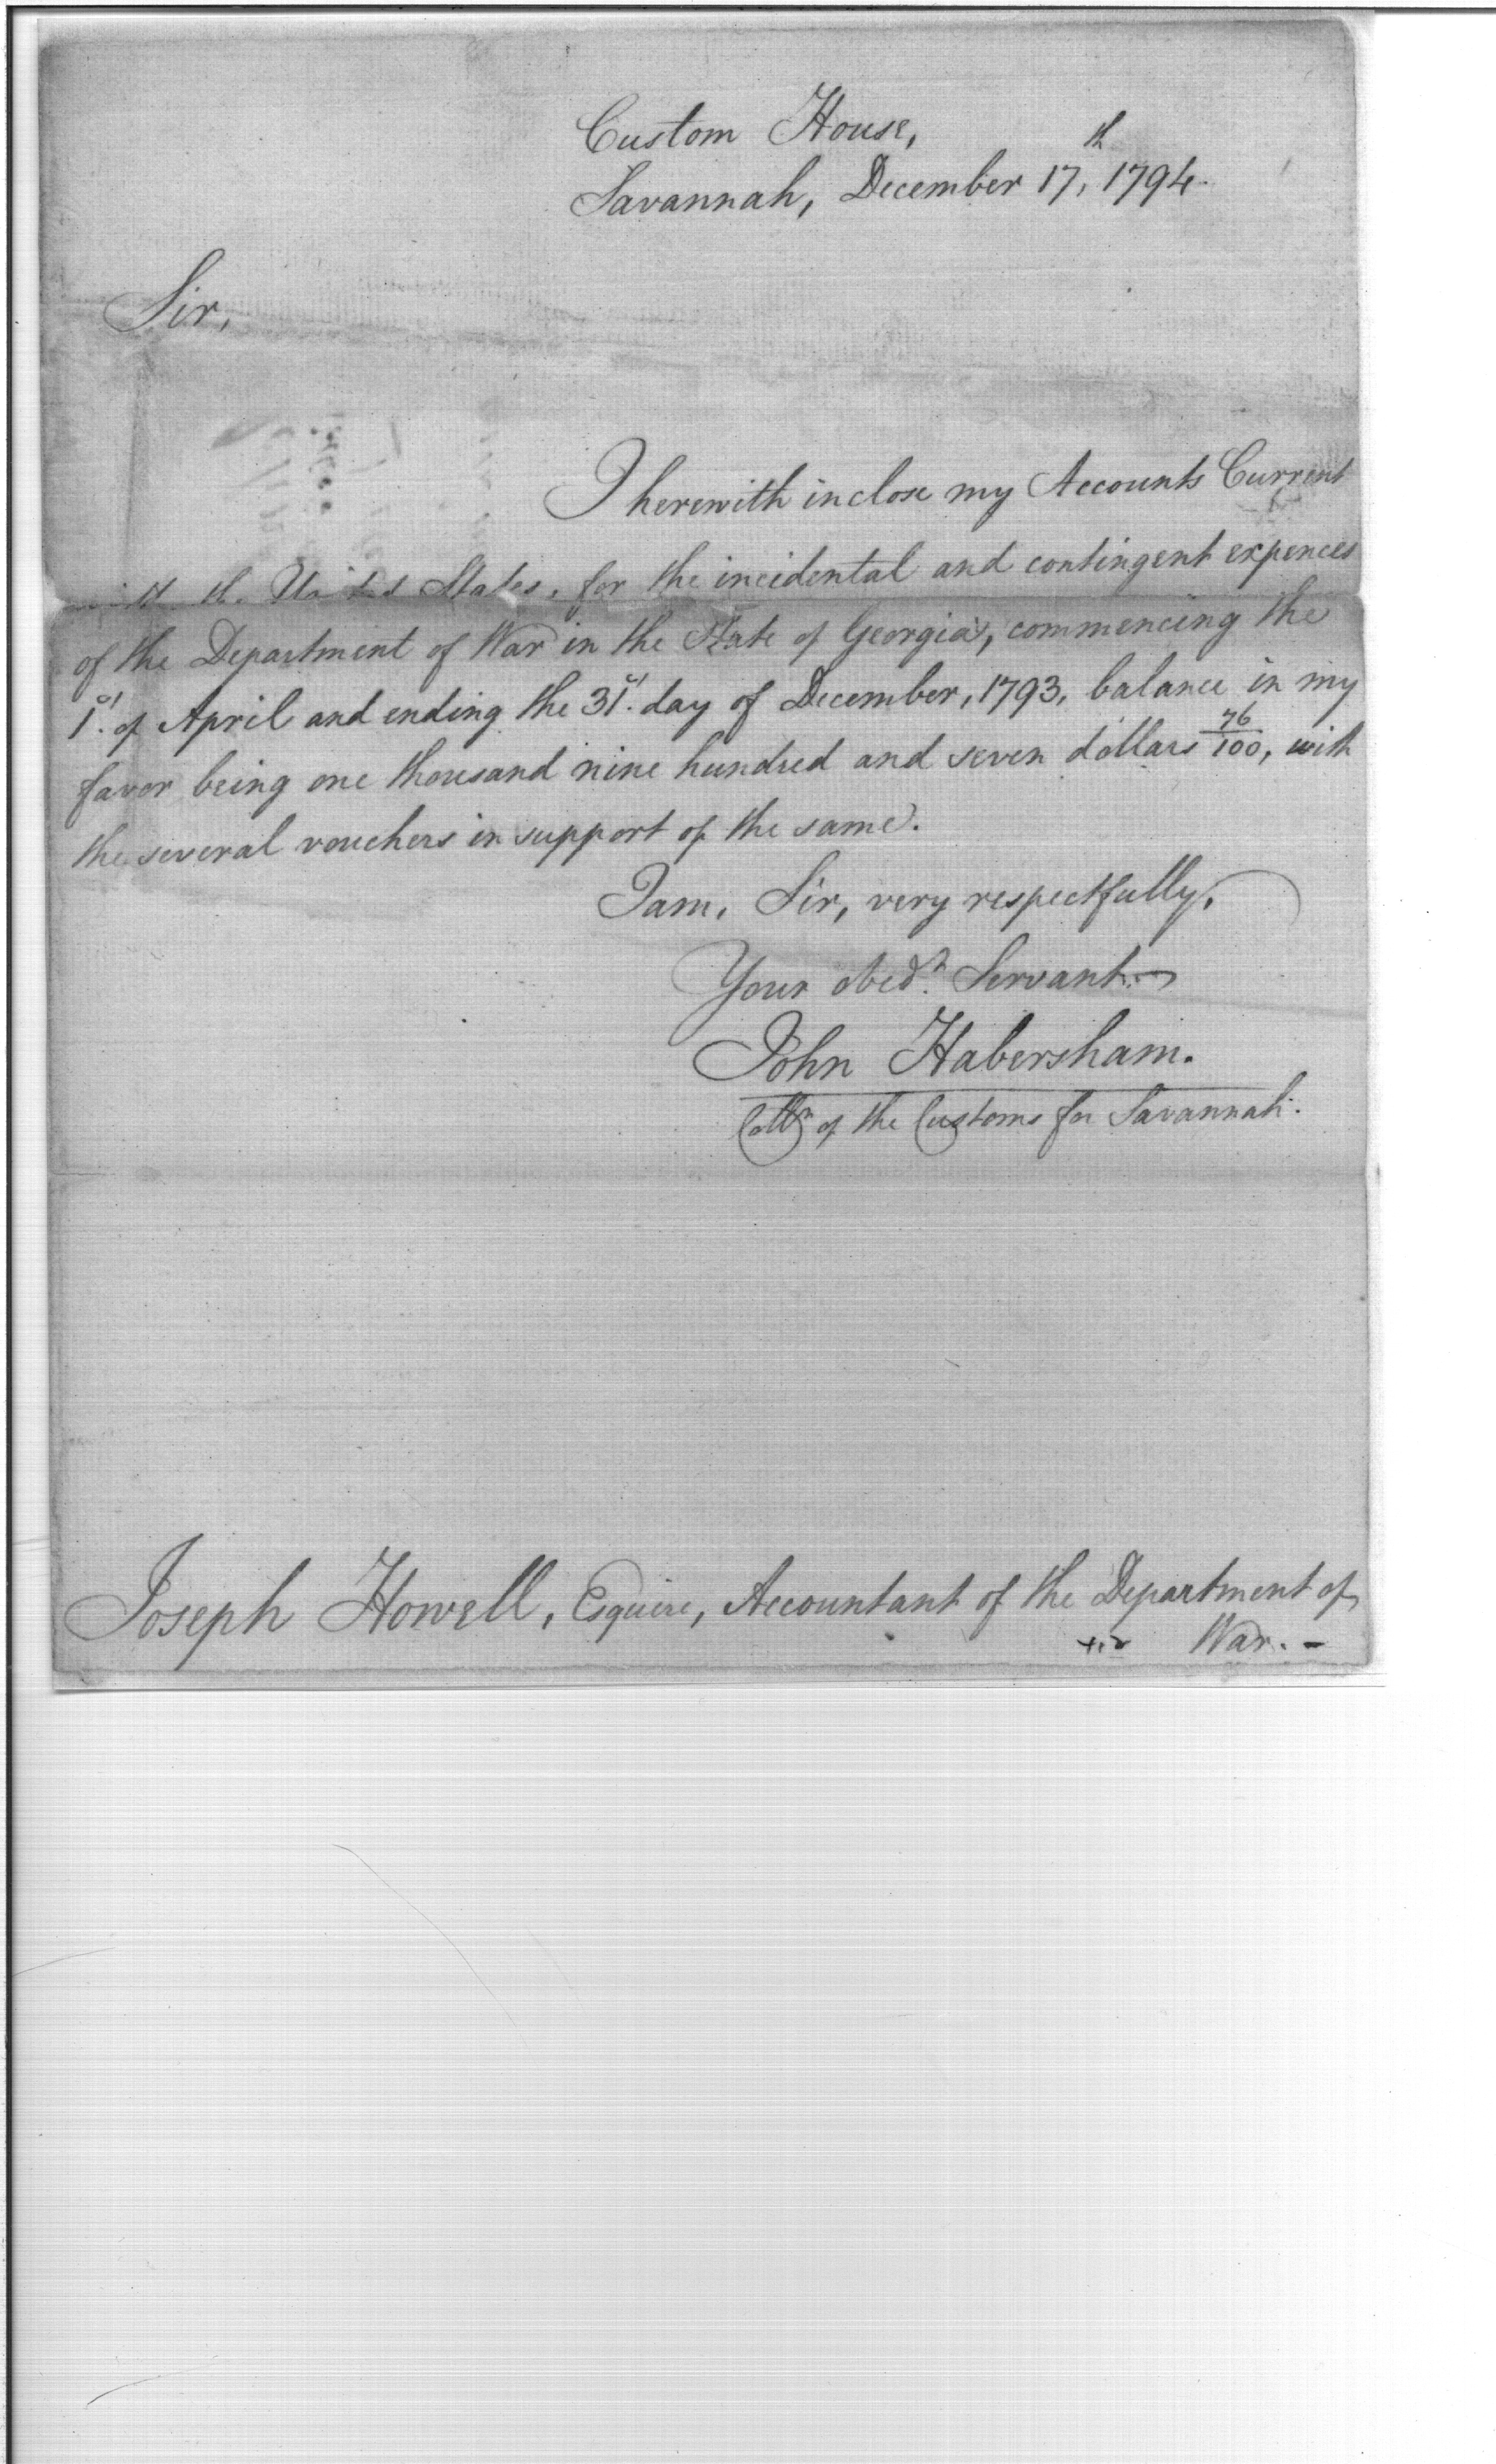 Custom House,
Savannah, December 17th, 1794.
Sir,
I herewith inclose my Accounts Current
with the United States, for the incidental and contingent expences
of the Department of War in the State of Georgia, commencing the
1st. of April and ending the 31st. day of December, 1793, balance in my
favor being one thousand nine hundred and seven dollars 76/100, with
the several vouchers in support of the same.
I am, Sir, very respectfully,
Your obedt. Servant
John Habersham.
Collr of the Customs for Savannah.
Joseph Howell, Esquire, Accountant of the Department of
War. -